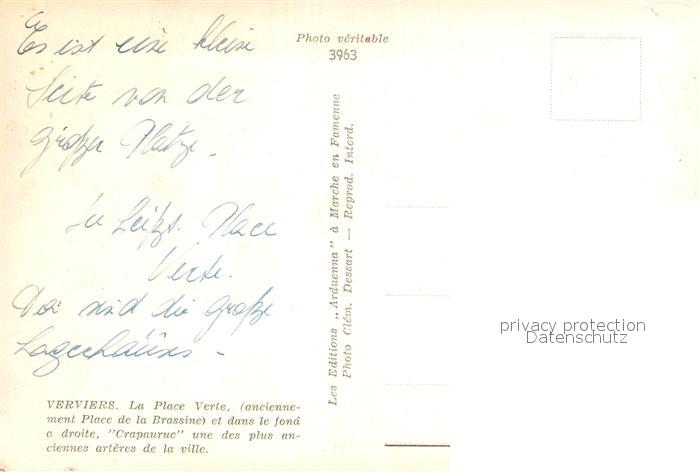 Es ist eine kleine
Seite von der
großen Platze.
Sie heißt. Place
Verte.
Da sind die große
Lagerhäuser -
VERVIERS. La Place Verte, (ancienne-
ment Place de la Brassine) et dans le fond
a droite, "Crapaurue" une des plus an-
ciennes artères de la ville.
Photo véritable
3963
Les Editions „Arduenna" à Marche en Famenne
Photo Clém. Dessart — Reprod. Interd.
privacy protection
Datenschutz